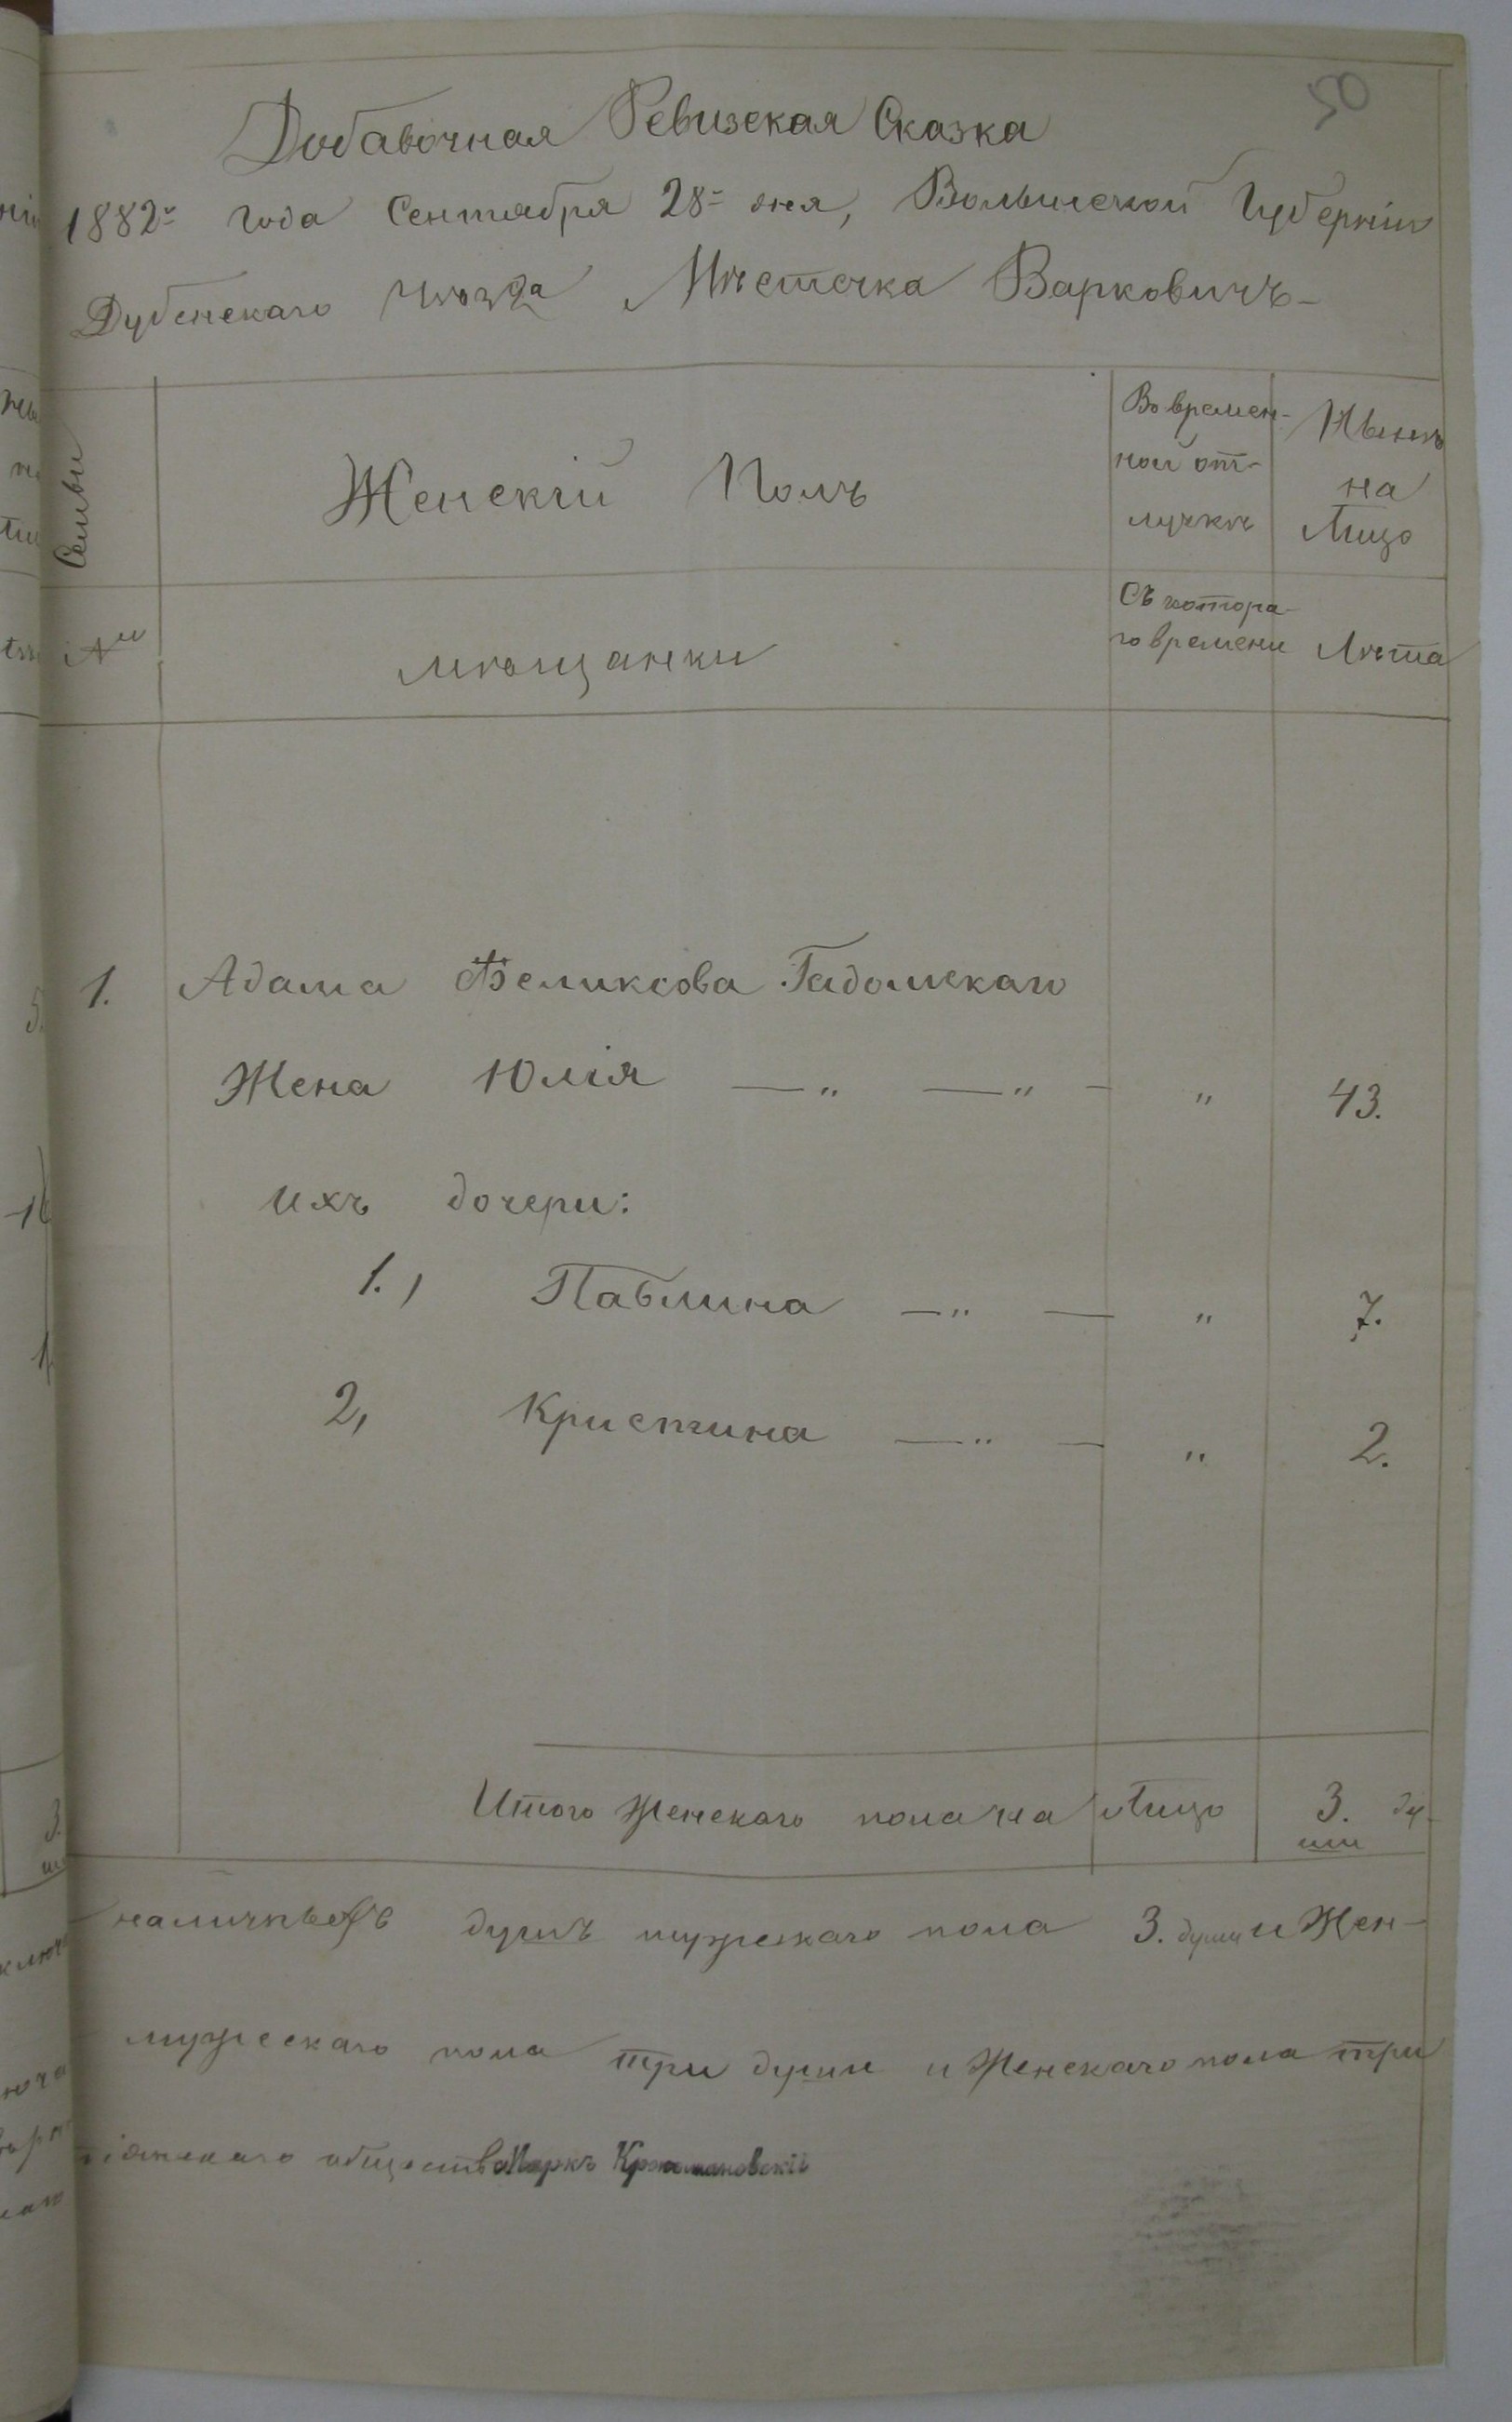 50
Добавочная Ревизская Сказка
1882го года Сентября 28го дня, Волынской Губерніи
Дубенскаго Уѣзда Мѣстечка Варковичъ-
Семьи
Женскій Полъ
Во времен-
ной от-
лучкѣ
Нынѣ
на
Лицо
№
мѣщанки
Съ котора-
го времени
Лѣта
1. Адама Феликсова Гадомскаго
Жена Юлія —„ —„ — „ 43.
ихъ дочери:
1., Павлина —„ — „ 7.
2, Кристина —„ — „ 2.
Итого женскаго пола на Лицо 3. ду-
ши
наличныхъ душъ мужескаго пола 3. души и Жен-
мужескаго пола три души и Женскаго пола три
общества Маркъ